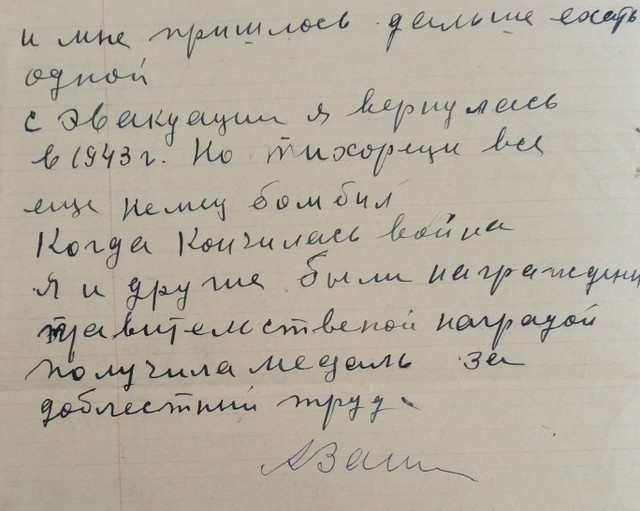 и мне пришлось дальше ехать
одной
с эвакуации я вернулась
в 1943 г. Но тихорецк все
еще немец бомбил
Когда Кончилась война
я и другие были награждены
правительственой наградой
получила медаль за
доблестный труд.